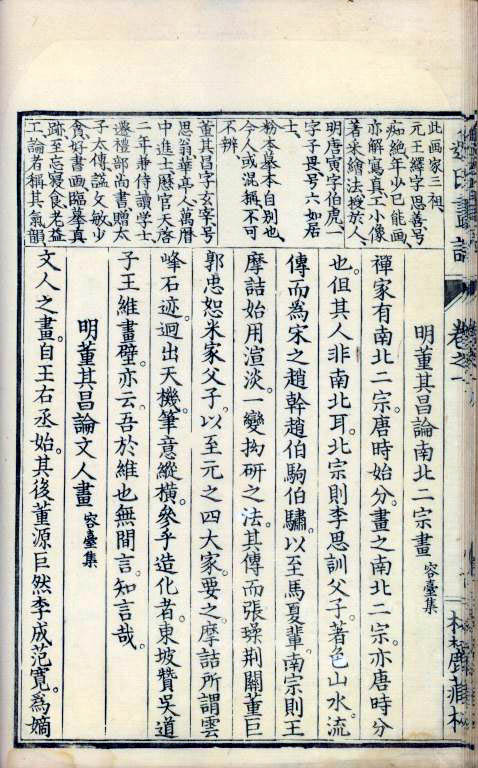 卷之一
此画家三祖、
元王繹字思善号
痴絶年少已能画、
亦解寫真工小像
著采繪法授於人、
明唐寅字伯虎、
字子畏号六如居
士、
粉本摹本自別也、
今人或混稱不可
不辨
董其昌字玄宰号
思翁華亭人萬曆
中進士歷官天啓
二年兼侍讀學士
遷禮部尚書贈太
子太傅、謚文敏少
貪好書画臨摹真
跡、至忘寢食老益
工、論者稱其氣韻
明董其昌論南北二宗畫 容臺集
禪家有南北二宗。唐時始分。畫之南北二宗。亦唐時分
也。但其人非南北耳。北宗則李思訓父子。著色山水。流
傳而為宋之趙幹趙伯駒伯驌。以至馬夏輩。南宗則王
摩詰始用渲淡。一變拘研之法。其傳而張璪荊關董巨
郭忠恕米家父子。以至元之四大家。要之摩詰所謂雲
峰石迹。迥出天機。筆意縱橫。參乎造化者。東坡贊吳道
子王維畫壁。亦云。吾於維也無間言。知言哉。
明董其昌論文人畫 容臺集
文人之畫。自王右丞始。其後董源巨然李成范寬。為嫡